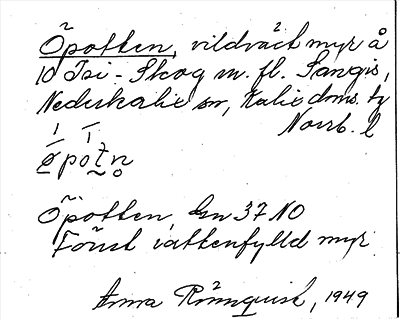 Öpotten, vildväxt myr å
10 Isi-Skog m. fl. Sangis,
Nederkalix sn, Kalix doms. tg
Norrb. l
Öpotten, Gn 37 NO
Förut vattenfylld myr
Anna Rönnquist, 1949